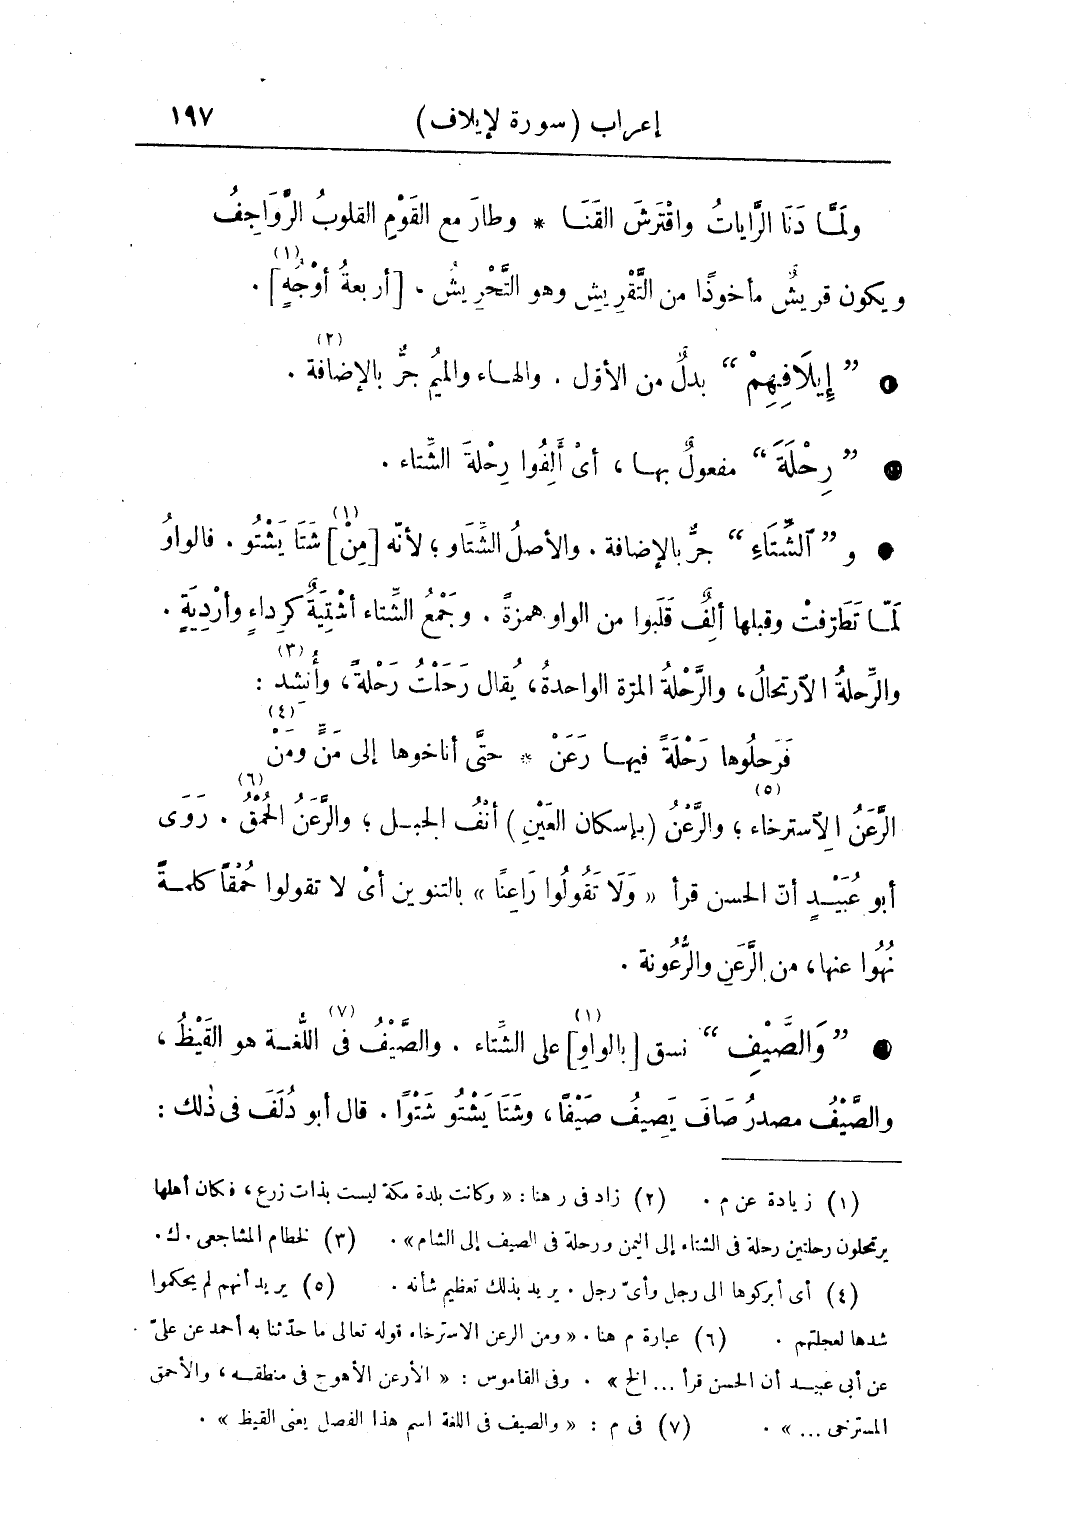 إعراب (سورة لإيلاف) ١٩٧
ولَمَّا دَنَا الرَّاياتُ واقْتَرَشَ القَنَا * وطارَ مع القَوْمِ القلوبُ الرَّوَاجِفُ
ويكون قريشٌ مأخوذًا من التَّقْرِيشِ وهو التَّحْرِيشُ . [أربعةُ أوْجُهٍ](١) .
● ”إِيلَافِهِمْ“ بدلٌ من الأوّل . والهاء والميُم جرٌّ بالإضافة(٢) .
● ”رِحْلَةَ“ مفعولٌ بها ، أىْ أَلِفُوا رِحْلةَ الشِّتاء .
● و ”الشِّتَاءِ“ جرٌّ بالإضافة . والأصلُ الشِّتَاو ؛ لأنّه [مِنْ](١) شَتَا يَشْتُو . فالواوُ
لَمّا تَطَرّفتْ وقبلها ألِفٌ قَلَبوا من الواو همزةً . وجَمْعُ الشِّتاء أشْتِيَةٌ كرِداءٍ وأرْدِيَةٍ .
والرِّحلةُ الاَرتحالُ ، والرَّحْلةُ المرّة الواحدةُ ، يُقال رَحَلْتُ رَحْلةً ، وأُنشِد(٣) :
فَرَحلُوها رَحْلَةً فيها رَعَنْ * حتَّى أناخوها إلى مَنٍّ ومَنْ(٤)
الرَّعَنُ الاِسترخاء(٥) ؛ والرَّعْنُ (بإسكان العَيْنِ) أنْفُ الجبل ؛ والرَّعَنُ الحُمْقُ(٦) . رَوَى
أبو عُبَيْدٍ أنّ الحسن قرأ « وَلَا تَقُولُوا رَاعِنًا » بالتنوين أىْ لا تقولوا حُمْقاً كلمةً
نُهُوا عنها ، من الرَّعَنِ والرُّعُونة .
● ”وَالصَّيْفِ“ نسق [بالواوِ](١) على الشِّتاء . والصَّيْفُ فى(٧) اللُّغة هو القَيْظُ ،
والصَّيْفُ مصدرُ صَافَ يَصِيفُ صَيْفًا ، وشَتَا يَشْتُو شَتْوًا . قال أبو دُلَفَ فى ذٰلك :
(١) زيادة عن م . (٢) زاد فى ر هنا : « وكانت بلدة مكة ليست بذات زرع ، فكان أهلها
يرتحلون رحلتين رحلة فى الشتاء إلى اليمن ورحلة فى الصيف إلى الشام » . (٣) لخطام المشاجعى . ك .
(٤) أى أبركوها الى رجل وأىّ رجل . يريد بذلك تعظيم شأنه . (٥) يريد أنهم لم يحكموا
شدها لعجلتهم . (٦) عبارة م هنا . « ومن الرعن الاسترخاء قوله تعالى ما حدّثنا به أحمد عن علىّ
عن أبى عبيد أن الحسن قرأ ... الخ » . وفى القاموس : « الأرعن الأهوج فى منطقه ، والأحمق
المسترخى ... » . (٧) فى م : « والصيف فى اللغة اسم هذا الفصل يعنى القيظ » .